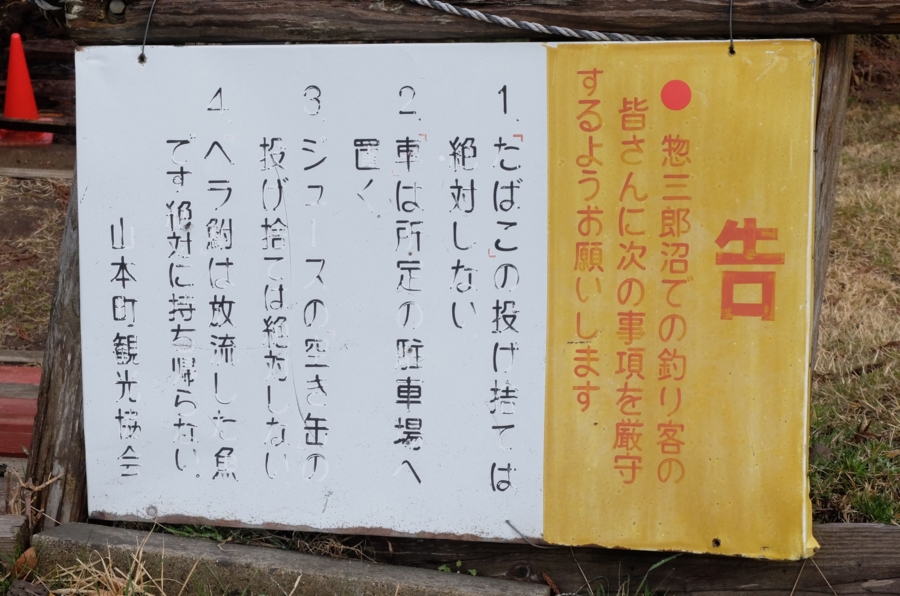 告
● 惣三郎沼での釣り客の
皆さんに次の事項を厳守
するようお願いします
1.「たばこ」の投げ捨ては
絶対しない
2.「車は所定の駐車場へ
置く、
3.ジュースの空き缶の
投げ捨ては絶対しない
4.ヘラ鮒は放流した魚
です絶対に持ち帰らない.
山本町観光協会